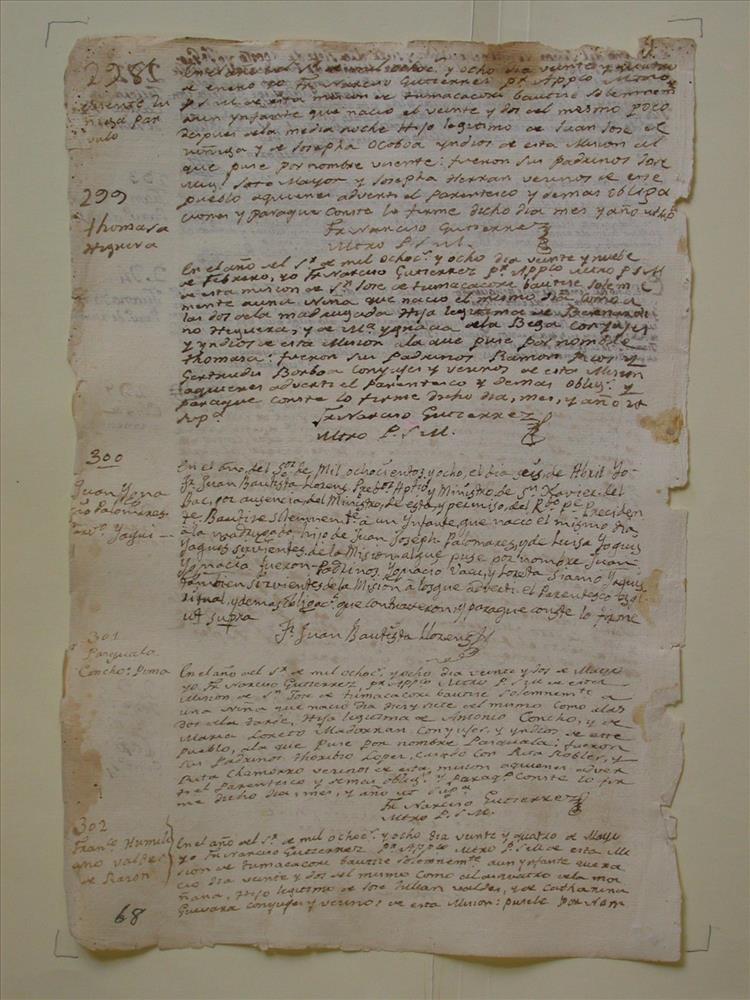 298
Vicente Zu
ñiga par
vulo
En el año del Sr. de mil ochoc.s y ocho dia veinte y quatro
de enero yo Fr. Narciso Gutierrez pr. Appco Mtro
P. S. M. de esta mision de tumacacori bautise solemnem.te
a un ynfante que nacio el veinte y dos del mesmo poco
despues de la media noche Hijo legitimo de Juan Jose
Zuñiga y de Josepha Ocoboa yndios de esta Mision al
que puse por nombre Vicente: fueron sus padrinos Jose
Mig.l Soto Mayor y Josepha Herran vecinos de este
pueblo aquienes adverti el parentesco y demas obliga
ciones y paraque conste lo firme dicho dia mes y año ut sup.a
Fr. Narciso Gutierrez
Mtro P. S. M.
299
Thomasa
Higuera
En el año del Sr. de mil ochoc.s y ocho dia veinte y nuebe
de Febrero, yo Fr. Narciso Gutierrez pr. Appco Mtro P. S. M
de esta mision de Sn. Jose de tumacacori bautise solem
mente a una Niña que nacio el mismo dia como a
las dos de la madrugada Hija legitima de Bernardi
no Higuera, y de Ma. ygnacia de la Bega conjuges
y yndios de esta Mision a la que puse por nombre
thomasa: fueron sus padrinos Ramon Rios y
Gertrudis Borboa conyuges y vecinos de esta Mision
aquienes adverti el parentesco y demas oblig.s y
paraque conste lo firme dicho dia, mes, y año ut
sup.a
Fr. Narciso Gutierrez
Mtro P. S. M.
300
Juan Ygna
cio Palomares
Parv.o Yaqui
En el año del Sor. de Mil ochocientos y ocho, el dia seis de Abril Yo
Fr. Juan Bautista Llorens Predr. Aptco y Ministro de Sn. Xavier del
Bac, por ausencia del Ministro de esta, y permiso del Rdo. Pe. Presiden
te Bautise solemnem.te à un Ynfante, que nacio el mismo dia
à la madrugada, hijo de Juan Joseph Palomares, y de Luisa Yaquis
Yaquis sirvientes de la Mision al que puse por nombre Juan
Ygnacio fueron Padrinos Ygnacio Vacu, y Loreta Siamo Yaquis
tambien Sirvientes de la Mision à los que adverti el Parentesco espi
ritual, y demas obligac.s que contraxeron, y paraque conste lo firme
ut supra
Fr. Juan Bautista Llorens
301
Pasquala
Concho: Pima
En el año del Sr. de mil ochoc.s y ocho dia veinte y dos de Mayo
yo Fr. Narciso Gutierrez, pr. Appco Mtro P. S. M. de esta
Mision de Sn. Jose de tumacacori bautise solemnem.te a
una Niña que nacio dia diez y siete del mismo como a las
dos de la tarde, Hija legitima de Antonio Concho, y de
Maria Loreto Madorran conyuges, y yndios de este
pueblo, a la que puse por nombre Pasquala: fueron
sus padrinos thoribio Lopez, casado con Rita Robles, y
Rita Chamorro vecinos de esta mision aquienes adver
ti el parentesco y demas oblig.s y paraq.e conste lo fir
me dicho dia, mes, y año ut sup.a
Fr. Narciso Gutierrez
Mtro P. S. M.
302
Fran.co Humili
ano Valdes
de Razon
En el año del Sr. de mil ochoc.s y ocho dia veinte y quatro de Mayo
yo Fr. Narciso Gutierrez pr. Appco Mtro P. S. M. de esta Mi
sion de tumacacori bautise solemnem.te a un ynfante que na
cio dia veinte y dos del mismo como a las quatro de la ma
ñana, Hijo legitimo de Jose Julian Valdes, y de Catharina
Guevara conyuges y vecinos de esta Mision: pusele por Nom
68